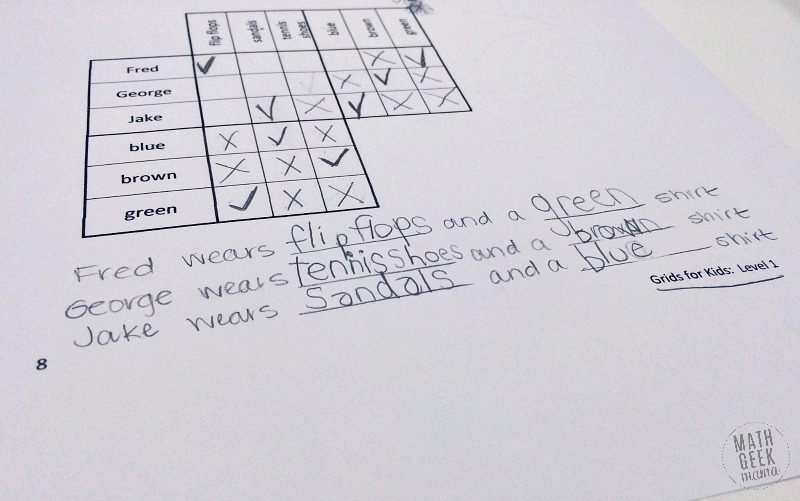 flip flops sandals tennis shoes blue brown green
Fred
George
Jake
blue
brown
green
Fred wears flip flops and a green shirt
George wears tennis shoes and a brown shirt
Jake wears sandals and a blue shirt
Grids for Kids: Level 1
8
MATH
GEEK
mama